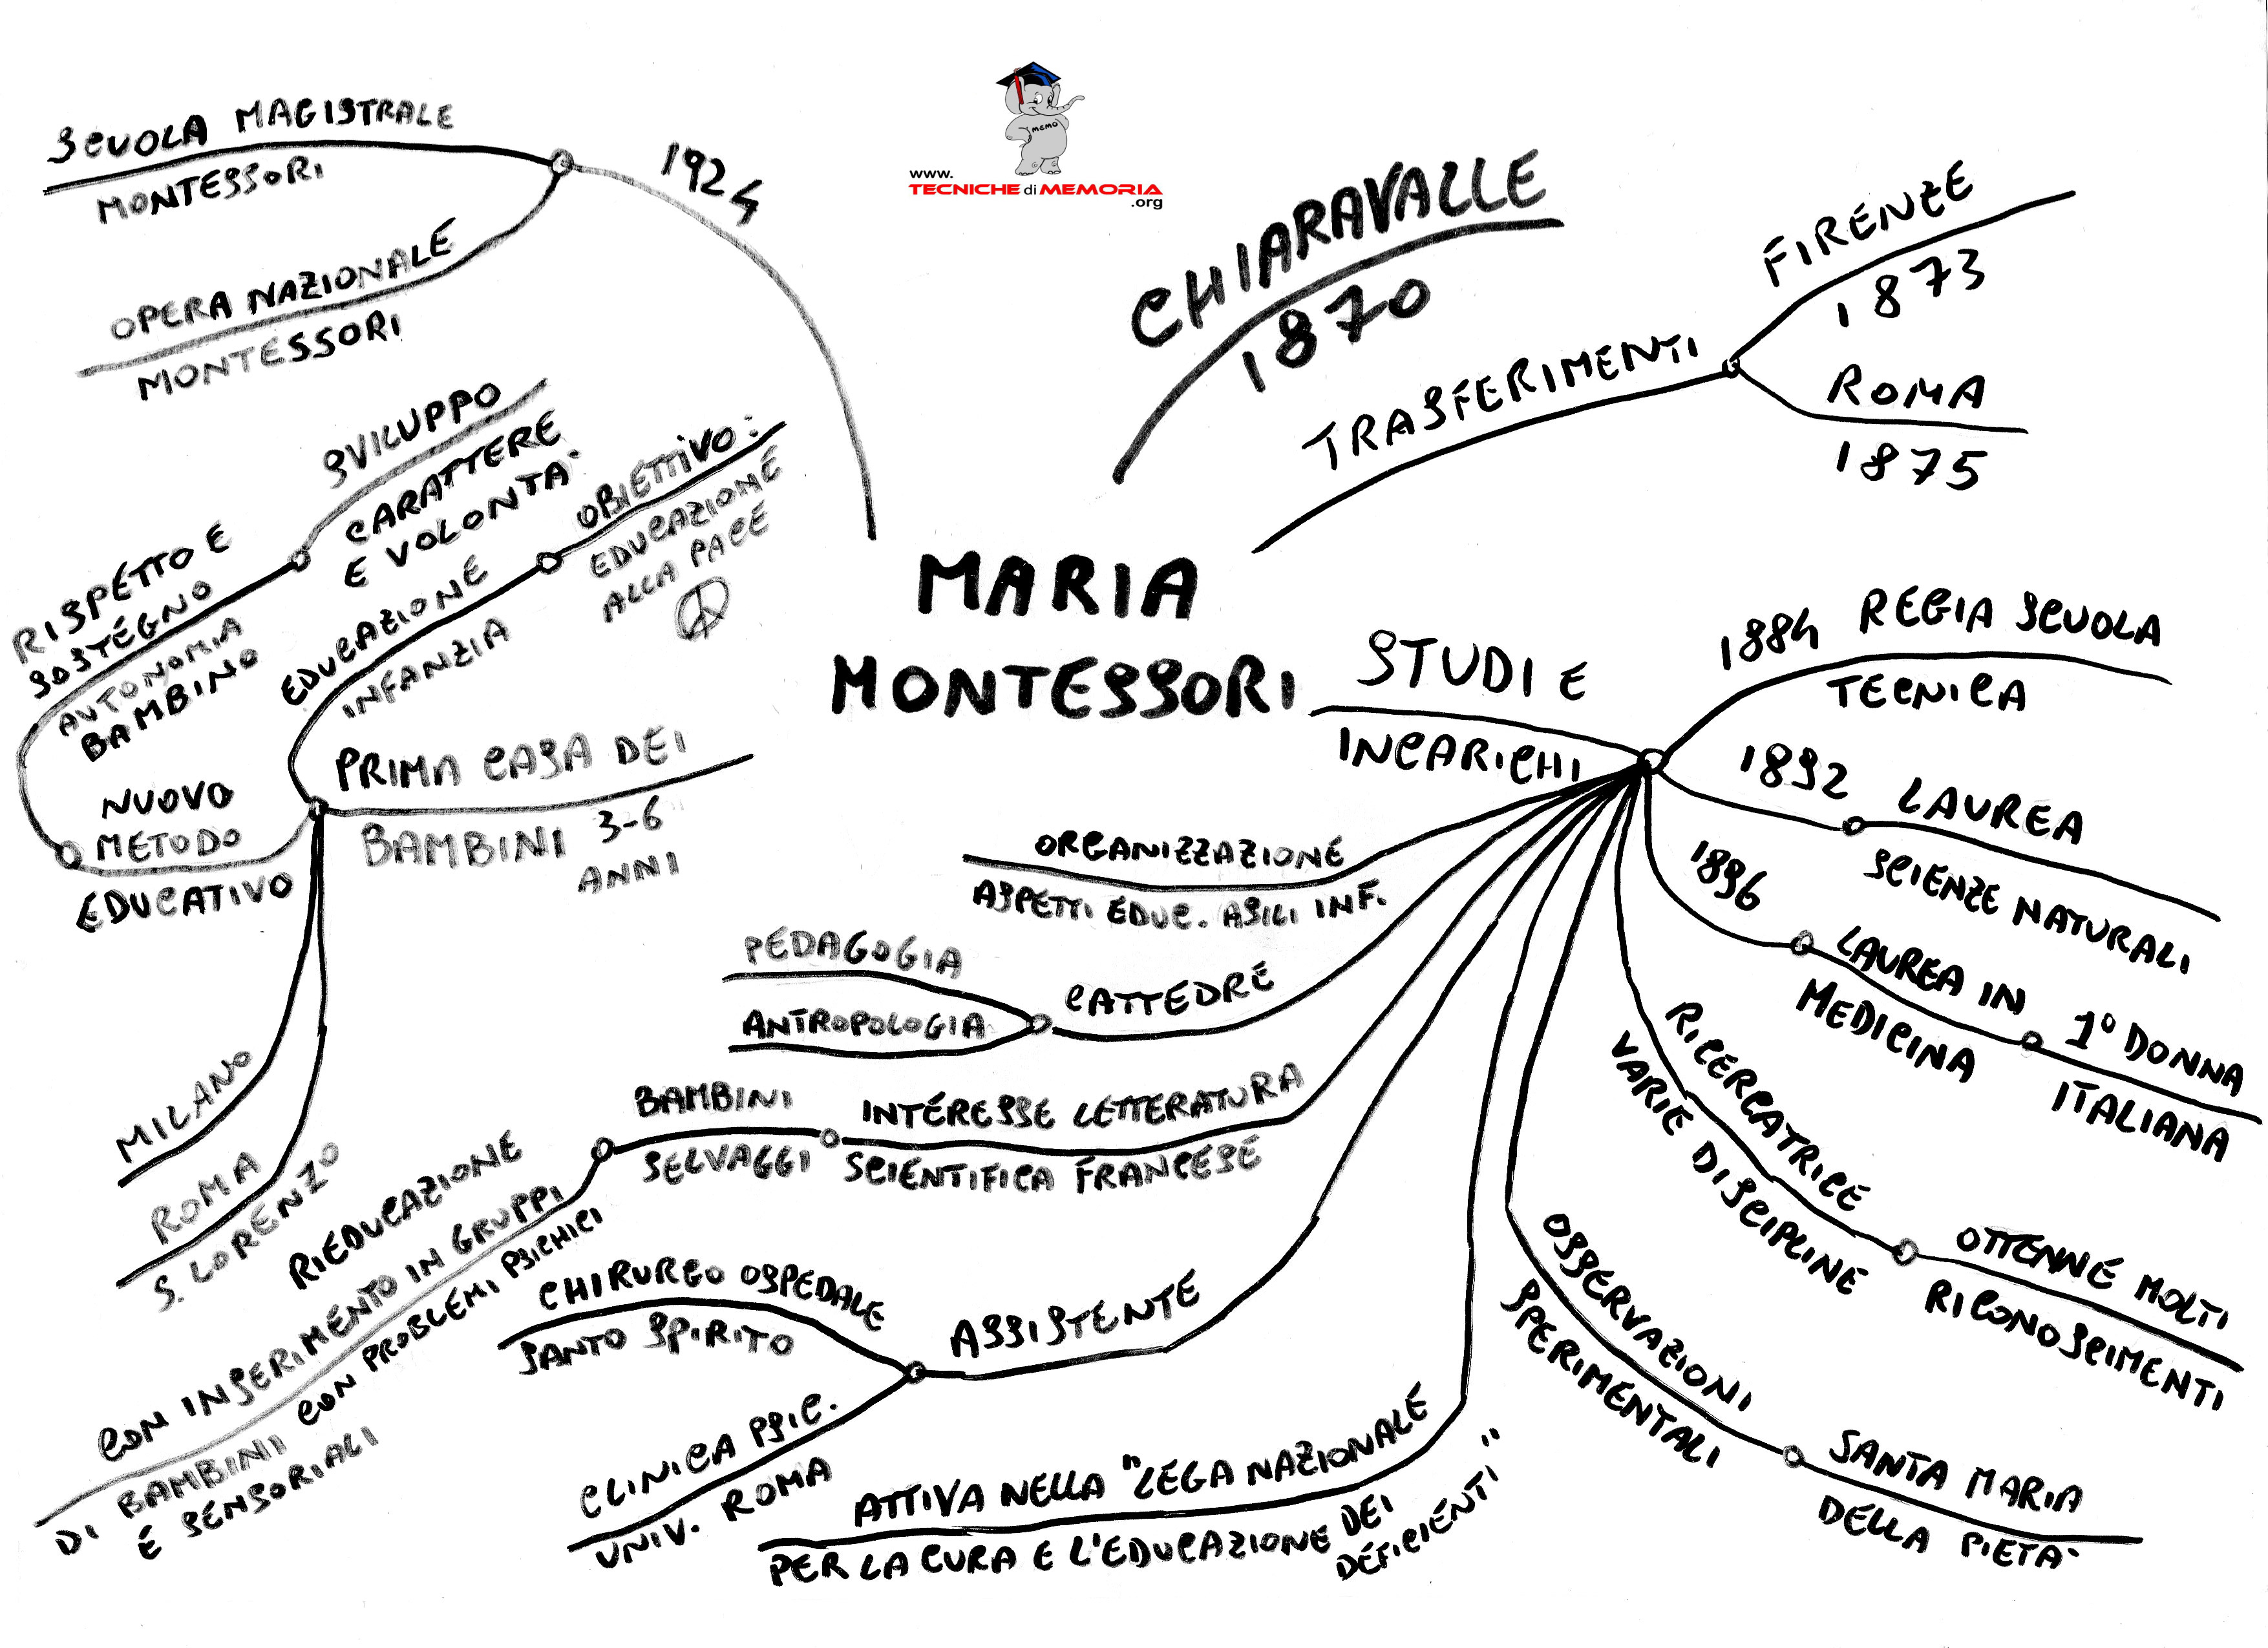 MEMO
www.
TECNICHE di MEMORIA
.org
MARIA
MONTESSORI
CHIARAVALLE
1870
TRASFERIMENTI
FIRENZE
1873
ROMA
1875
STUDI E
INCARICHI
1884 REGIA SCUOLA
TECNICA
1892 LAUREA
SCIENZE NATURALI
1896
LAUREA IN
MEDICINA
1° DONNA
ITALIANA
RICERCATRICE
VARIE DISCIPLINE
OTTENNE MOLTI
RICONOSCIMENTI
OSSERVAZIONI
SPERIMENTALI
SANTA MARIA
DELLA PIETA'
ATTIVA NELLA "LEGA NAZIONALE
PER LA CURA E L'EDUCAZIONE DEI
DEFICIENTI"
ASSISTENTE
CHIRURGO OSPEDALE
SANTO SPIRITO
CLINICA PSIC.
UNIV. ROMA
INTERESSE LETTERATURA
SCIENTIFICA FRANCESE
BAMBINI
SELVAGGI
RIEDUCAZIONE
CON INSERIMENTO IN GRUPPI
DI BAMBINI CON PROBLEMI PSICHICI
E SENSORIALI
CATTEDRE
PEDAGOGIA
ANTROPOLOGIA
ORGANIZZAZIONE
ASPETTI EDUC. ASILI INF.
PRIMA CASA DEI
BAMBINI 3-6
ANNI
ROMA
S. LORENZO
MILANO
NUOVO
METODO
EDUCATIVO
RISPETTO E
SOSTEGNO
AUTONOMIA
BAMBINO
SVILUPPO
CARATTERE
E VOLONTA'
EDUCAZIONE
INFANZIA
OBIETTIVO:
EDUCAZIONE
ALLA PACE
1924
OPERA NAZIONALE
MONTESSORI
SCUOLA MAGISTRALE
MONTESSORI